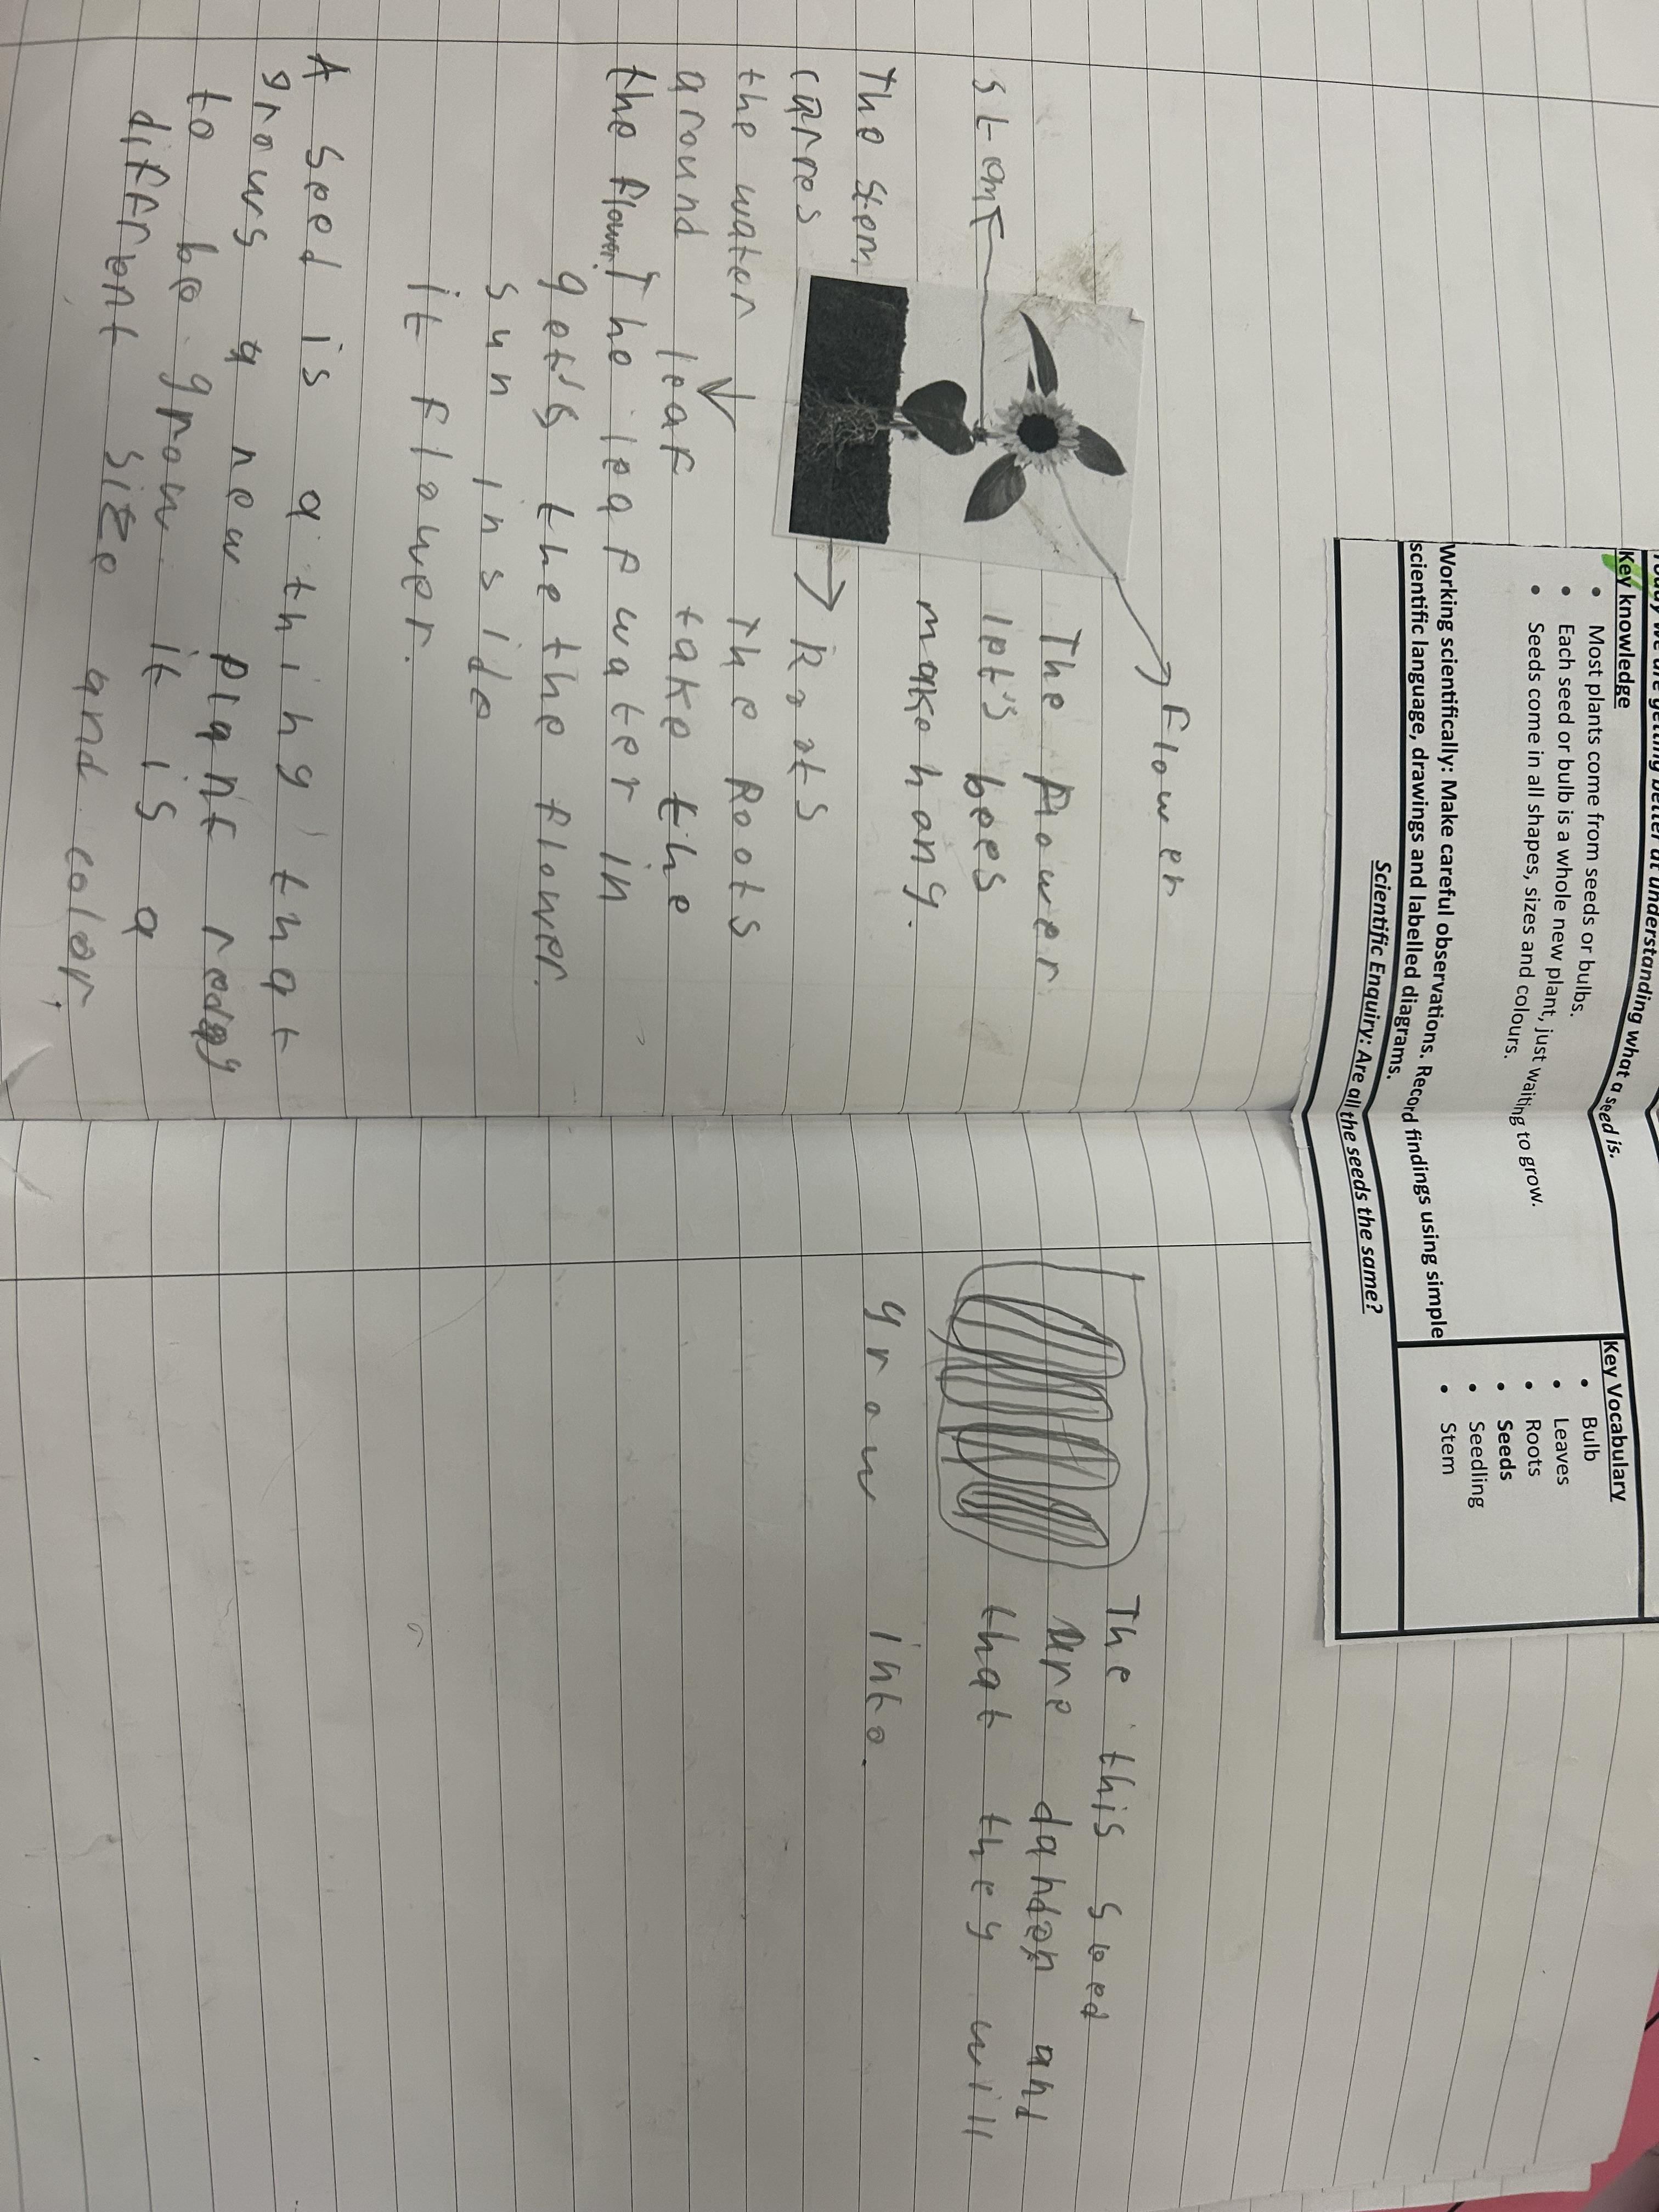 Today we are getting better at understanding what a seed is.
Key knowledge
• Most plants come from seeds or bulbs.
• Each seed or bulb is a whole new plant, just waiting to grow.
• Seeds come in all shapes, sizes and colours.
Key Vocabulary
• Bulb
• Leaves
• Roots
• Seeds
• Seedling
• Stem
Working scientifically: Make careful observations. Record findings using simple
scientific language, drawings and labelled diagrams.
Scientific Enquiry: Are all the seeds the same?
Flower
The flower
let's bees
make hany.
stem
The stem
carres
the water
around
the flower.
Roots
The Roots
take the
water in
leaf
The leaf
get's the the flower.
sun inside
it flower.
A seed is a thing that
grows a new plant redy
to be grow. it is a
diffrent size and color.
The this seed
are and
that they will
grow into.